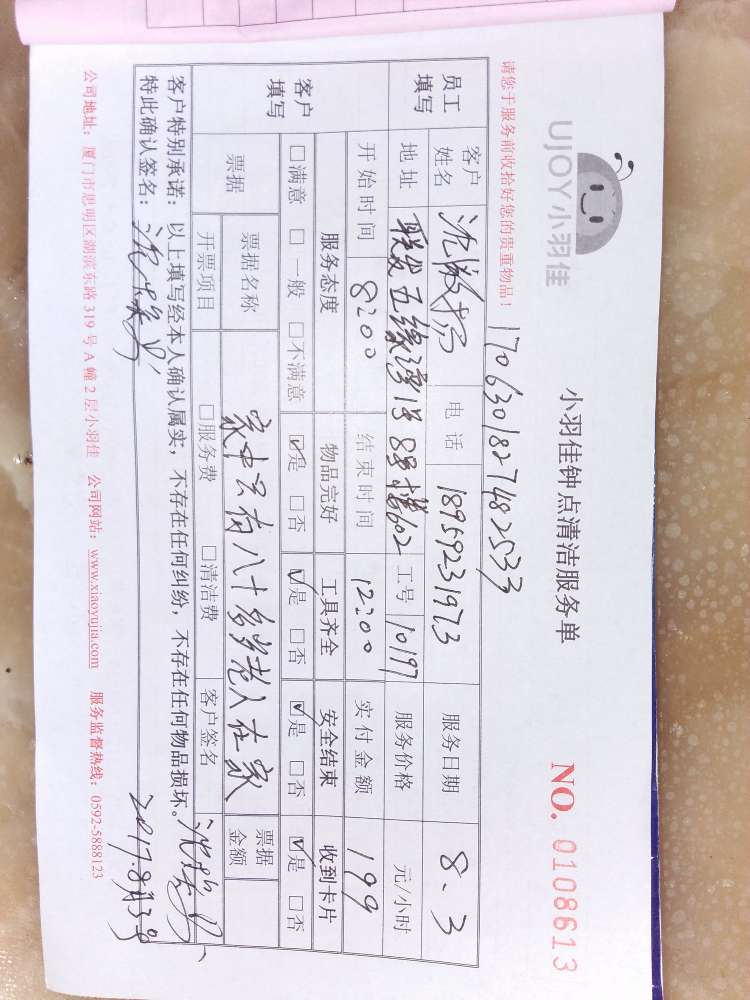 UJOY小羽佳
小羽佳钟点清洁服务单
NO. 0108613
请您于服务前收拾好您的贵重物品!
1706301827482533
员工填写 客户姓名 沈 扬 电话 18959231973 服务日期 8.3
地址 联发五缘湾1号8号楼602 工号 10197 服务价格 元/小时
开始时间 8:00 结束时间 12:00 实付金额 199
客户填写 服务态度 物品完好 工具齐全 安全结束 收到卡片
□满意 □一般 □不满意 ☑是 □否 ☑是 □否 ☑是 □否 ☑是 □否
票据 票据名称 家中只有八十多岁老人在家 票据金额
开票项目 □服务费 □清洁费 客户签名
客户特别承诺:以上填写经本人确认属实,不存在任何纠纷,不存在任何物品损坏。
特此确认签名: 2017.8月3号
公司地址:厦门市思明区湖滨东路319号A幢2层小羽佳 公司网站:www.xiaoyujia.com 服务监督热线:0592-5888123